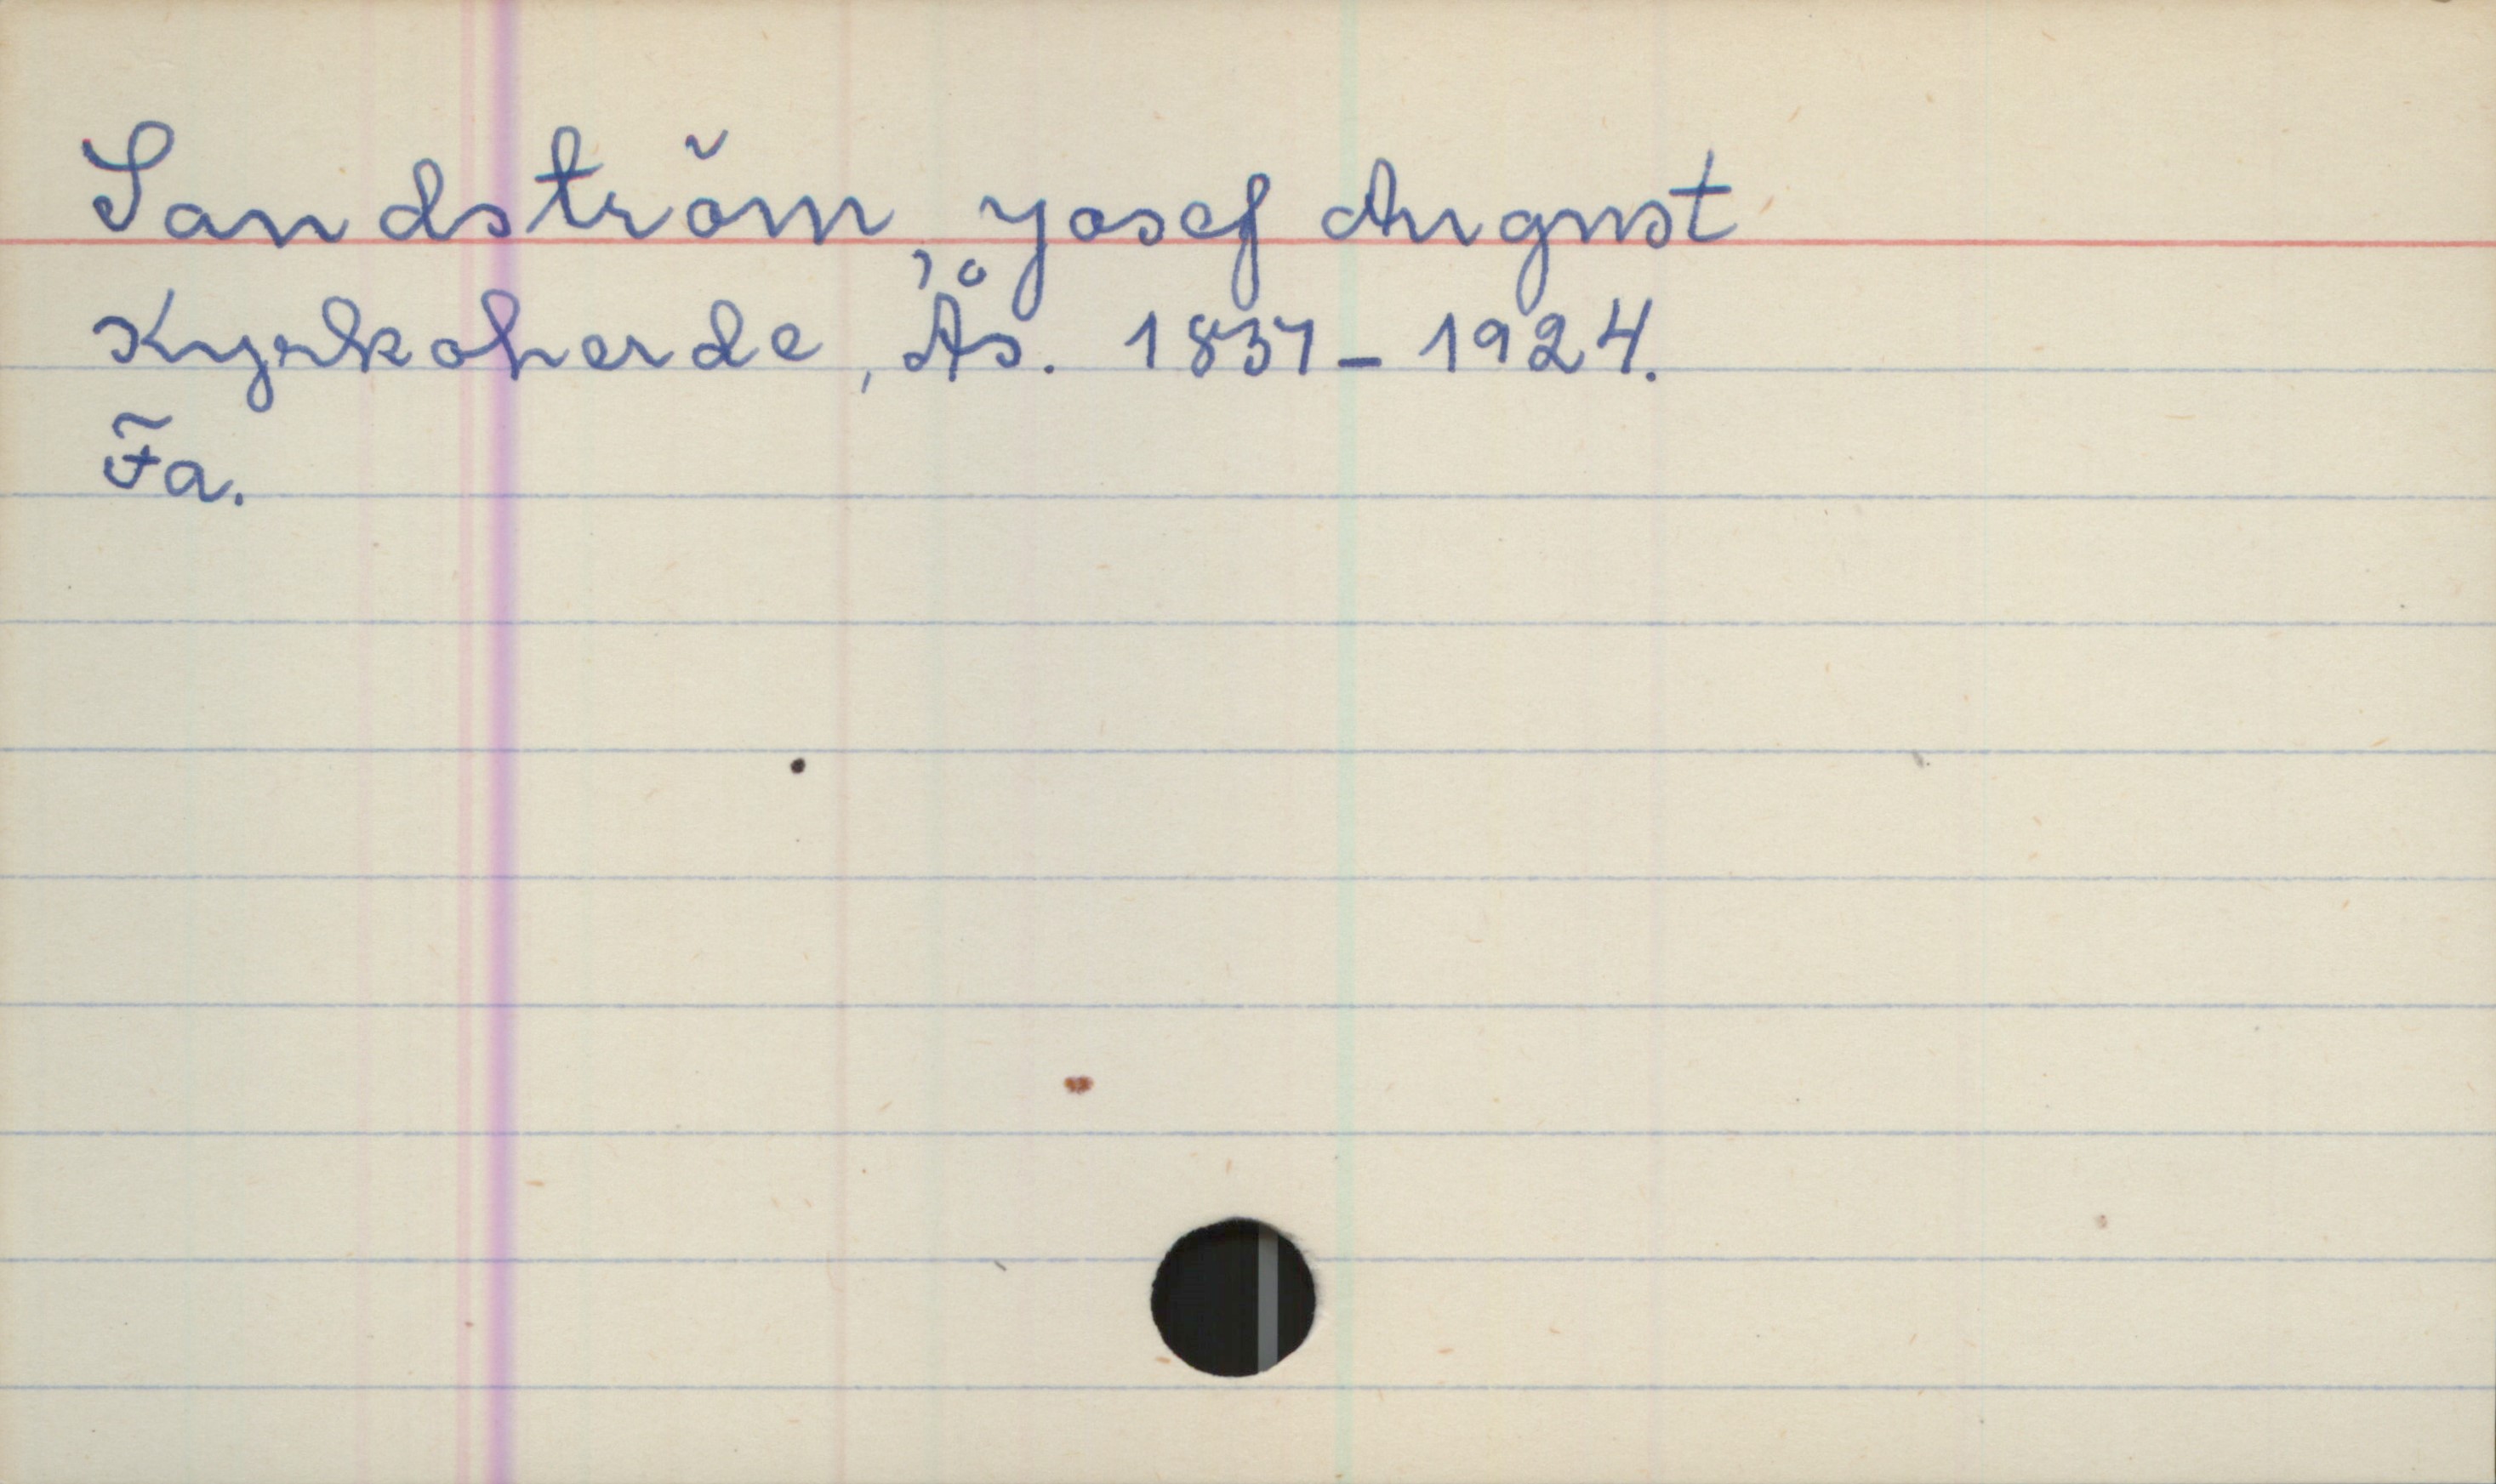 Sandström, Josef August
Kyrkoherde, Ås. 1837-1924.
Fa.